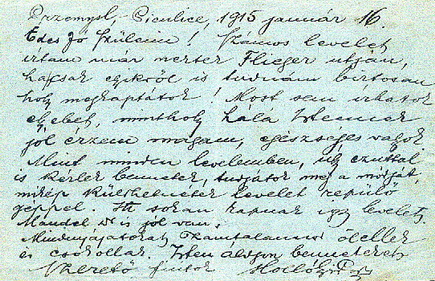 Przemysl, Pikulice, 1915 január 16.
Édes Jó Szüleim! Számos levelet
irtam már nektek Flieger utján,
hacsak egyikről is tudnám biztosan
hogy megkaptátok! Most sem irhatok
egyebet, minthogy hála Istennek
jól érzem magam, egészséges vagyok
Mint minden levelemben, úgy ezuttal
is kérlek benneteket, tudjátok meg a módját,
mikép küldhetnétek levelet repülő
géppel. Itt sokan kapnak igy levelet.
Mandel is jól van.
Mindnyájatokat számtalanszor ölellek
és csókollak. Isten áldjon benneteket
Szerető fiatok